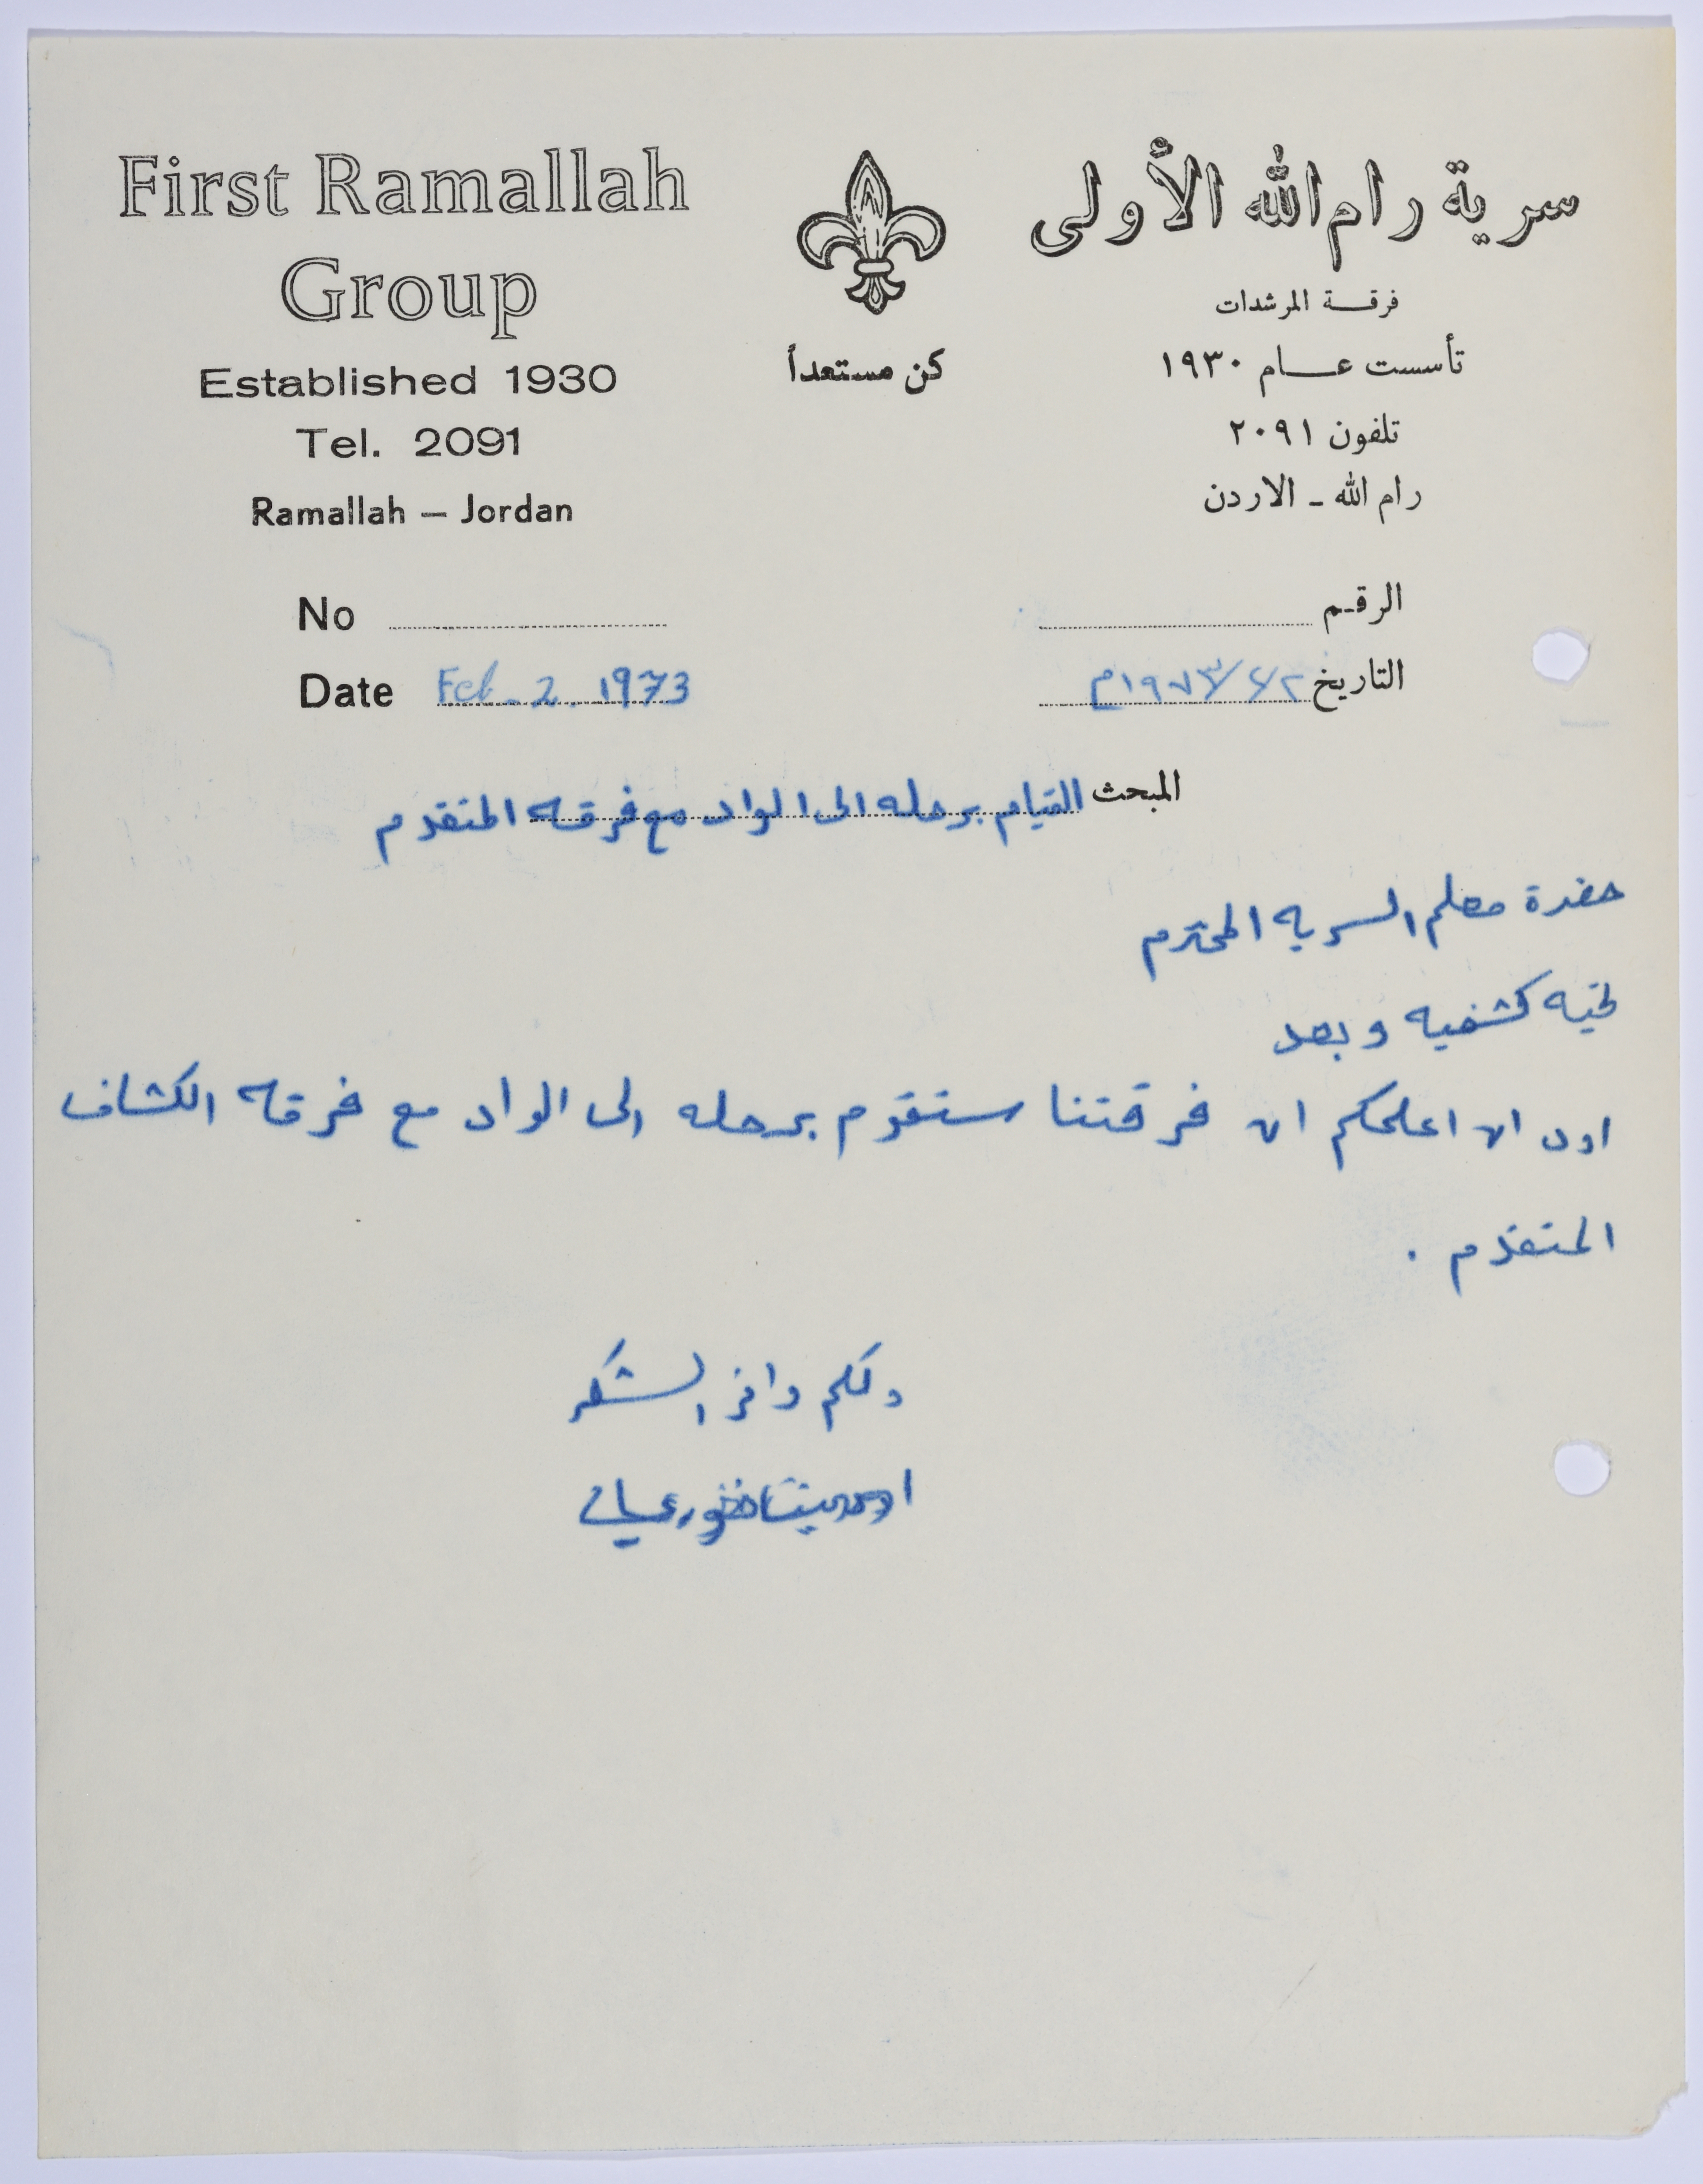 First Ramallah
Group
Established 1930
Tel. 2091
Ramallah — Jordan
كن مستعداً
سرية رام الله الأولى
فرقة المرشدات
تأسست عام ١٩٣٠
تلفون ٢٠٩١
رام الله - الاردن
No
الرقم
Date Feb. 2. 1973
التاريخ ٢/٢/١٩٧٣م
المبحث القيام برحله الى الواد مع فرقه المتقدم
حضرة معلم السريه المحترم
تحيه كشفيه وبعد
اود ان اعلمكم ان فرقتنا ستقوم برحله الى الواد مع فرقه الكشاف
المتقدم .
ولكم وافر الشكر